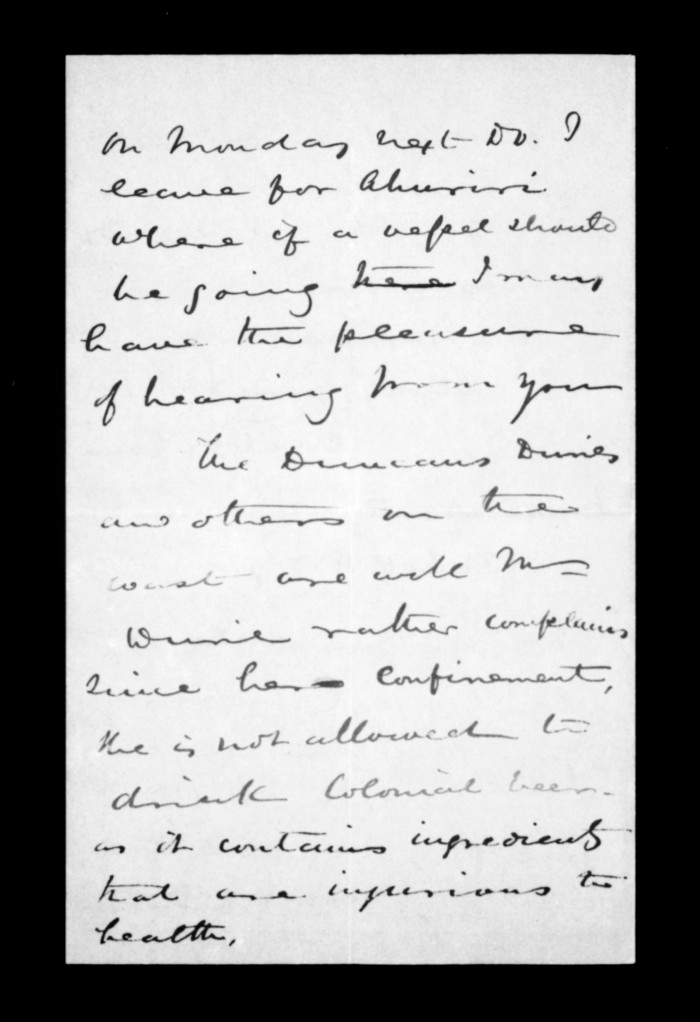 On Monday next DV. I
leave for Ahuriri
where if a vessel should
be going here I may
have the pleasure
of hearing from you
The Duncans Duries
and others on the
coast are well Mrs
Durie rather complains
since her confinement,
she is not allowed to
drink Colonial beer
as it contains ingredients
that are injurious to
health,